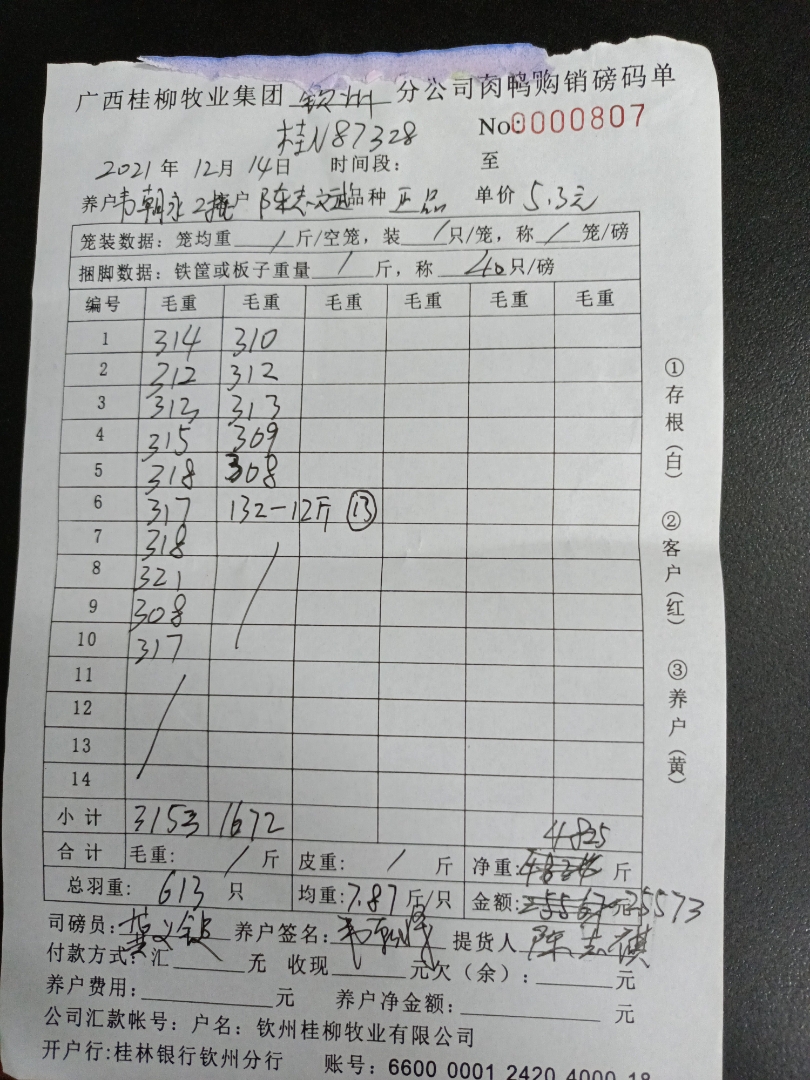 广西桂柳牧业集团 钦州 分公司肉鸭购销磅码单
桂N87328 No:0000807
2021年 12月 14日 时间段: 至
养户 韦朝永 2 户 陈志 品种 正品 单价 5.3元
笼装数据: 笼均重 / 斤/空笼, 装 / 只/笼, 称 / 笼/磅
捆脚数据: 铁筐或板子重量 / 斤, 称 40 只/磅
编号 毛重 毛重 毛重 毛重 毛重 毛重
1 314 310
2 312 312
3 313 313
4 315 309
5 318 308
6 317 132-12斤 ⑬
7 318 /
8 321
9 308
10 317
11 /
12
13
14
小计 3153 1672 4825
合计 毛重: / 斤 皮重: / 斤 净重: 斤
总羽重: 613 只 均重: 7.87 斤/只 金额: 元 25573
司磅员: 养户签名: 提货人 陈志祺
付款方式: 汇 无 收现 元欠(余): 元
养户费用: 元 养户净金额: 元
公司汇款帐号: 户名: 钦州桂柳牧业有限公司
开户行:桂林银行钦州分行 账号: 6600 0001 2420 4000 18
①存根(白) ②客户(红) ③养户(黄)